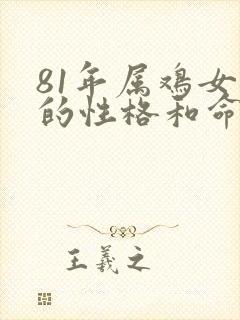 81年属鸡女
的性格和命
王羲之